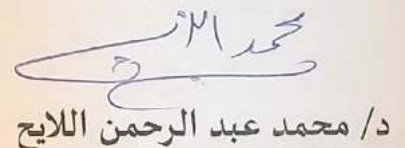 محمد
د/ محمد عبد الرحمن اللايح